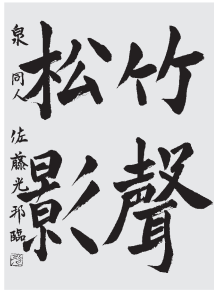 竹聲
松影
泉同人 佐藤光邪臨